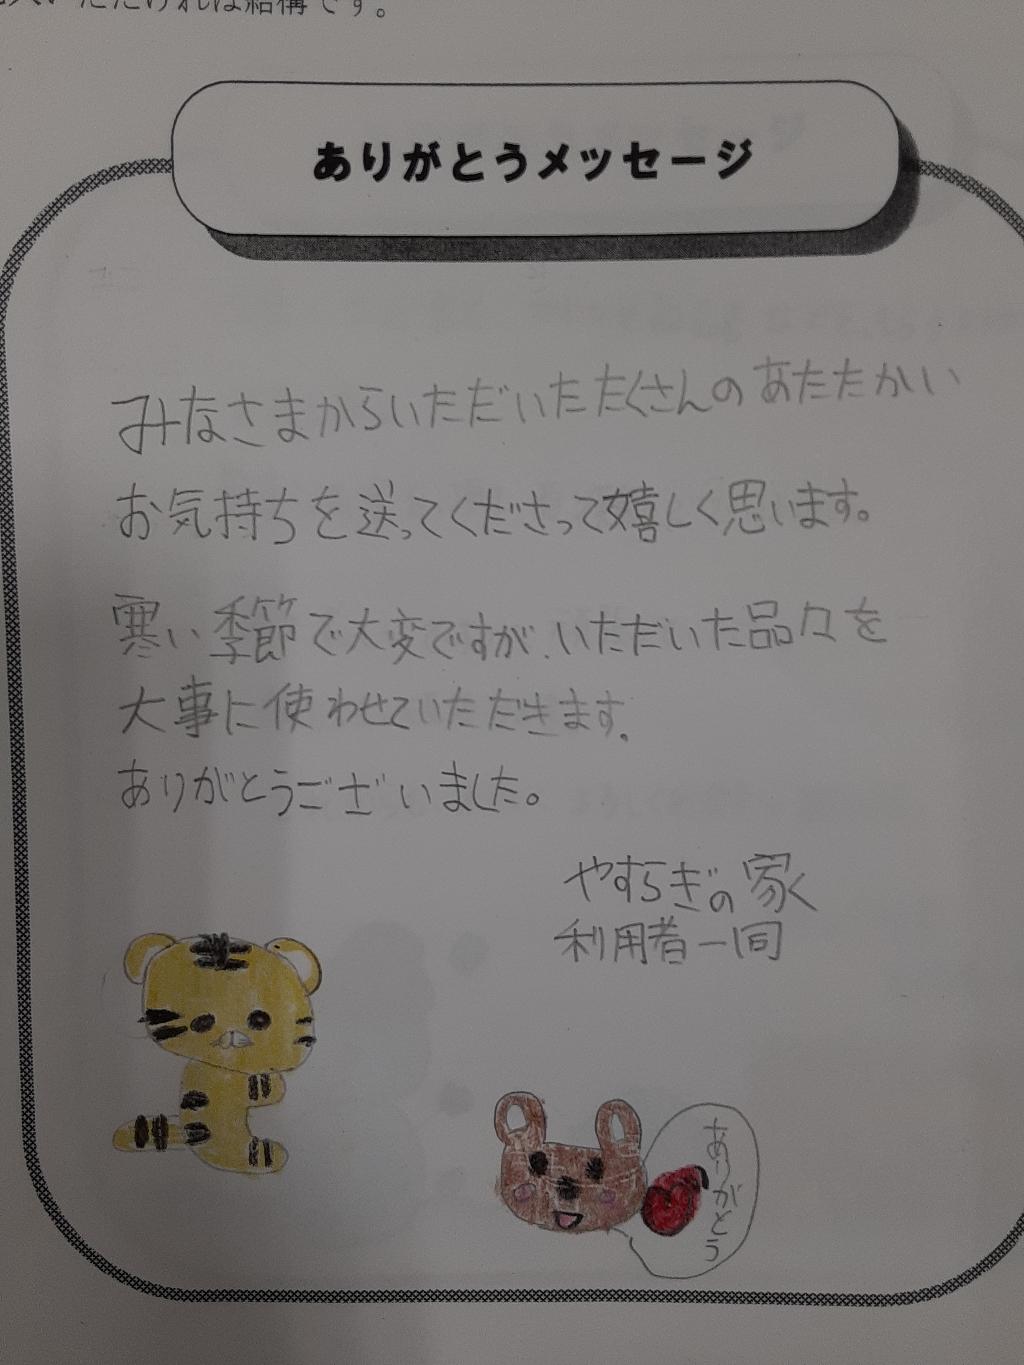 いただければ結構です。
ありがとうメッセージ
みなさまからいただいたたくさんのあたたかい
お気持ちを送ってくださって嬉しく思います。
寒い季節で大変ですが、いただいた品々を
大事に使わせていただきます。
ありがとうございました。
やすらぎの家
利用者一同
ありがとう